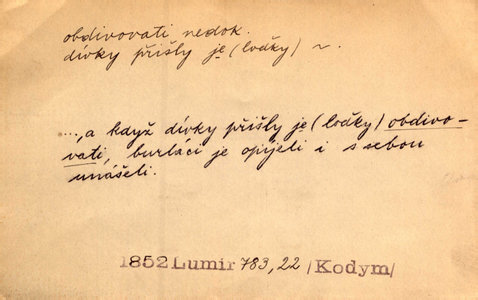 obdivovati nedok.
dívky přišly je (lodky) ~.
..., a když dívky přišly je (lodky) obdivo-
vati, burláci je opíjeli i s sebou
unášeli.
1852 Lumír 783, 22 /Kodym/